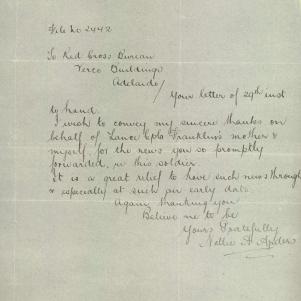 File No 2442
To Red Cross Bureau
Verco Buildings
Adelaide/
Your letter of 29th inst
to hand.
I wish to convey my sincere thanks on
behalf of Lance Cpls Franklin's mother &
myself, for the news you so promptly
forwarded, re this soldier.
It is a great relief to have such news through
& especially at such an early date.
Again thanking you
Believe me to be
Yours Gratefully
Nellie A